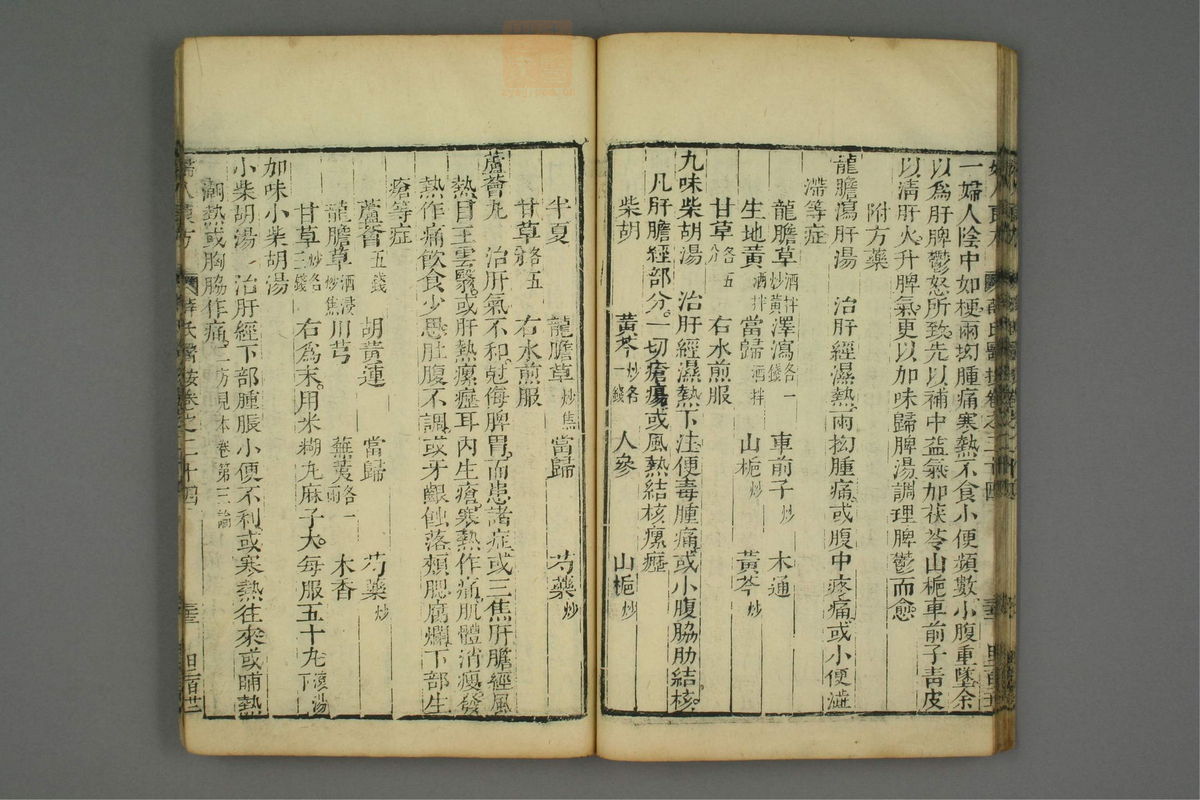 一婦人陰中如梗兩拗腫痛寒熱不食小便頻數小腹重墜余
以爲肝脾鬱怒所致先以補中益氣加茯苓山梔車前子青皮
以清肝火升脾氣更以加味歸脾湯調理脾鬱而愈
附方藥
龍膽瀉肝湯 治肝經濕熱兩拗腫痛或腹中疼痛或小便澁
滯等症
龍膽草酒拌炒黃 澤瀉各一錢 車前子炒 木通
生地黃酒拌 當歸酒拌 山梔炒 黃芩炒
甘草各五分 右水煎服
九味柴胡湯 治肝經濕熱下注便毒腫痛或小腹脇肋結核
凡肝膽經部分一切瘡瘍或風熱結核瘰癧
柴胡 黃芩炒各一錢 人參 山梔炒
半夏 龍膽草炒焦 當歸 芍藥炒
甘草各五分 右水煎服
蘆薈丸 治肝氣不和尅侮脾胃而患諸症或三焦肝膽經風
熱目生雲翳或肝熱瘰癧耳內生瘡寒熱作痛肌體消瘦發
熱作痛飲食少思肚腹不調或牙齦蝕落頰腮腐爛下部生
瘡等症
蘆薈五錢 胡黃連 當歸 芍藥炒
龍膽草酒浸炒焦 川芎 蕪荑各一兩 木香
甘草炒各三錢 右爲末用米糊丸麻子大每服五十丸滾湯下
加味小柴胡湯
小柴胡湯 治肝經下部腫脹小便不利或寒熱往來或晡熱
潮熱或胸脇作痛二方見本卷第三論
婦人良方 薛氏醫按卷之二十四